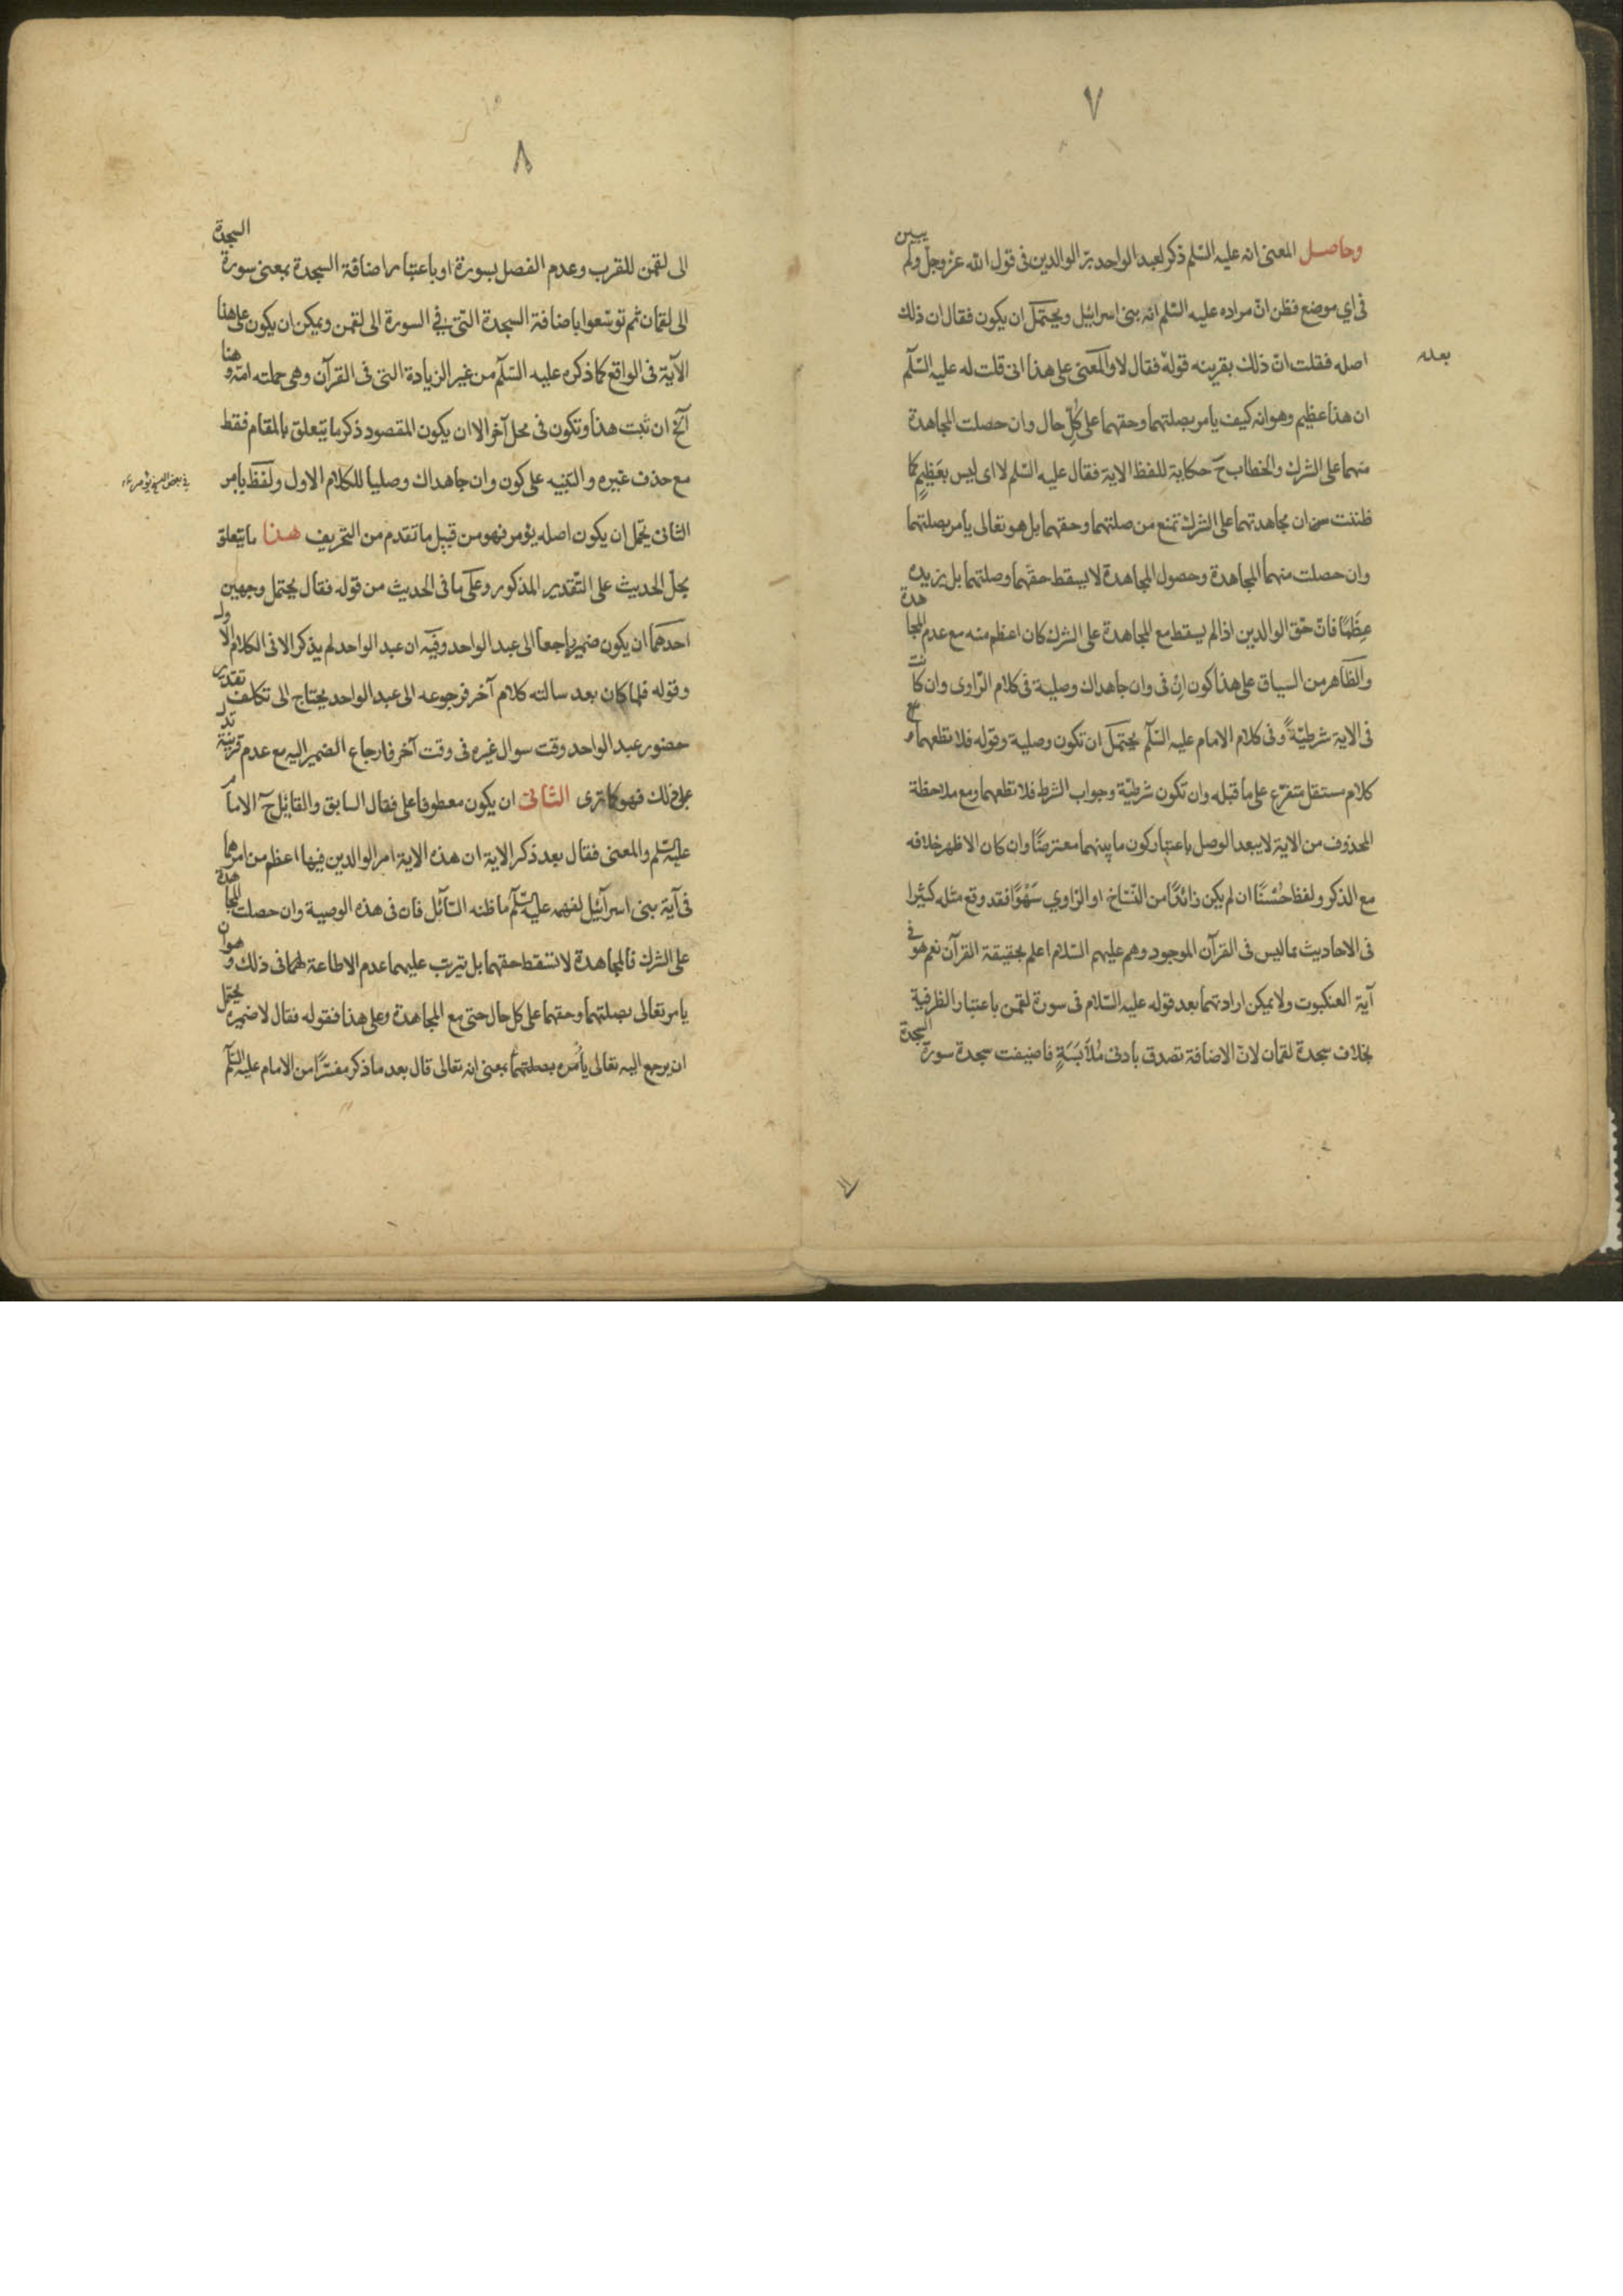 ٧
وحاصل المعنى انه عليه السّلم ذكر لعبد الواحد برّ الوالدين فى قول الله عزّوجلّ ولم يبيّن
فى اي موضع فظن انّ مراده عليه السّلم انه بنى اسرائيل ويحتمل ان يكون فقال ان ذلك
اصله فقلت انّ ذلك بقرينه قوله فقال لا والمعنى على هذا انى قلت له عليه السّلم
بعده
ان هذا عظيم وهو انه كيف يامر بصلتهما وحقهما على كلّ حال وان حصلت المجاهدة
منهما على الشرك والخطاب ح حكاية للفظ الاية فقال عليه السّلم لا اى ليس بعَظيمٍ كما
ظننت من ان مجاهدتهما على الشرك تمنع من صلتهما وحقهما بل هو تعالى يامر بصلتهما
وان حصلت منهما المجاهدة وحصول المجاهدة لا يسقط حقّهما وصلتهما بل يزيده
عِظَمًا فانّ حقّ الوالدين اذا لم يسقط مع المجاهدة على الشرك كان اعظم منه مع عدم المجاهدة
والظّاهر من السياق على هذا كون اِنْ فى وان جاهداك وصلية فى كلام الرّاوى وان كانت
فى الاية شرطيّةً وفى كلام الامام عليه السّلم يحتمل ان تكون وصلية وقوله فلا تطعهما مع
كلام مستقل متفرّع على ما قبله وان تكون شرطيّة وجواب الشرط فلا تطعهما ومع ملاحظة
المحذوف من الاية لا يبعد الوصل باعتبار كون ما بينهما معترضًا وان كان الاظهر خلافه
مع الذكر ولفظ حُسْنًا ان لم يكن زائدًا من النّسّاخ او الرّاوي سَهْوًا فقد وقع مثله كثيرا
فى الاحاديث مما ليس فى القرآن الموجود وهم عليهم السّلام اعلم بحقيقة القرآن نعم هو فى
آية العنكبوت ولا يمكن ارادتهما بعد قوله عليه السّلام فى سورة لقمن باعتبار الظرفية
بخلاف سجدة لقمان لانّ الاضافة تصدق بادنى مُلاَبَسَةٍ فاضيفت سجدة سورة السجدة
٨
الى لقمن للقرب وعدم الفصل بسورة او باعتبار اضافة السجدة بمعنى سورة السجدة
الى لقمان ثم توسّعوا باضافة السجدة التى فى السورة الى لقمن ويمكن ان يكون على هذا
الآية فى الواقع كما ذكره عليه السّلم من غير الزيادة التى فى القرآن وهى حملته امّه وهنا
آلخ ان ثبت هذا وتكون فى محل آخر الا ان يكون المقصود ذكر ما يتعلق بالمقام فقط
مع حذف غيره والتنبيه على كون وان جاهداك وصليا للكلام الاول ولفظ يامر
فى بعض النسخ يؤمر
الثانى يحتمل ان يكون اصله يؤمر فهو من قبيل ما تقدم من التحريف هذا ما يتعلق
بحلّ الحديث على التقدير المذكور وعلى ما فى الحديث من قوله فقال يحتمل وجهين
احدهما ان يكون ضميره راجعا الى عبد الواحد وفيه ان عبد الواحد لم يذكر الا فى الكلام الاول
وقوله فلما كان بعد سالته كلام آخر فرجوعه الى عبد الواحد يحتاج الى تكلف تقدير
حضور عبد الواحد وقت سوال غيره فى وقت آخر فارجاع الضمير اليه مع عدم قرينة تدل
على ذلك فهو كما ترى الثّانى ان يكون معطوفا على فقال السابق والقايل ح الامام
عليه السّلم والمعنى فقال بعد ذكر الاية ان هذه الاية امر الوالدين فيها اعظم من امرهما
فى آية بنى اسرآئيل لفهمه عليه السّلم ما ظنه السّآئل فان فى هذه الوصية وان حصلت المجاهدة
على الشرك فالمجاهدة لا تسقط حقهما بل يترتب عليهما عدم الاطاعة لهما فى ذلك وهو ان
يامر تعالى بصلتهما وحقهما على كل حال حتى مع المجاهدة وعلى هذا فقوله فقال لا ضميره يحتمل
ان يرجع اليه تعالى يأمره بصلتهما بمعنى انه تعالى قال بعد ما ذكر مفسّرًا من الامام عليه السّلم